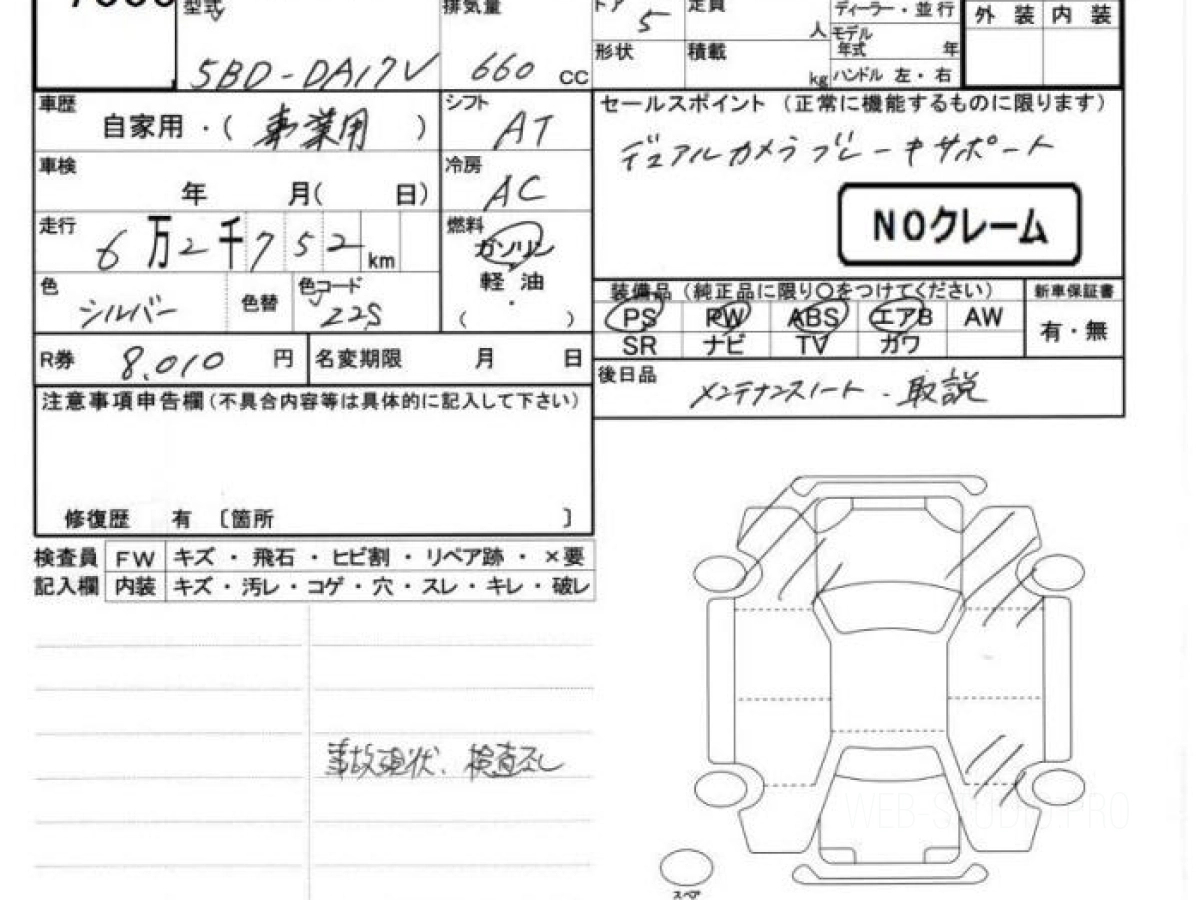 型式 排気量 ドア 定員 ディーラー・並行 外装 内装
5BD-DA17V 660 cc 5 人 モデル年式 年
形状 積載 kg ハンドル 左・右
車歴 自家用・( 事業用 ) シフト AT
セールスポイント (正常に機能するものに限ります)
デュアルカメラブレーキサポート
車検 年 月( 日) 冷房 AC
NOクレーム
走行 6万2千752km 燃料 ガソリン
軽油
・
( )
色 シルバー 色替 色コード Z2S
装備品 (純正品に限り○をつけてください) 新車保証書
PS PW ABS エアB AW 有・無
SR ナビ TV カワ
R券 8.010 円 名変期限 月 日
後日品 メンテナンスノート・取説
注意事項申告欄(不具合内容等は具体的に記入して下さい)
修復歴 有 〔箇所 〕
検査員 FW キズ・飛石・ヒビ割・リペア跡・×要
記入欄 内装 キズ・汚レ・コゲ・穴・スレ・キレ・破レ
事故現状、検査なし
WEB-STUDIO.PRO
スペア